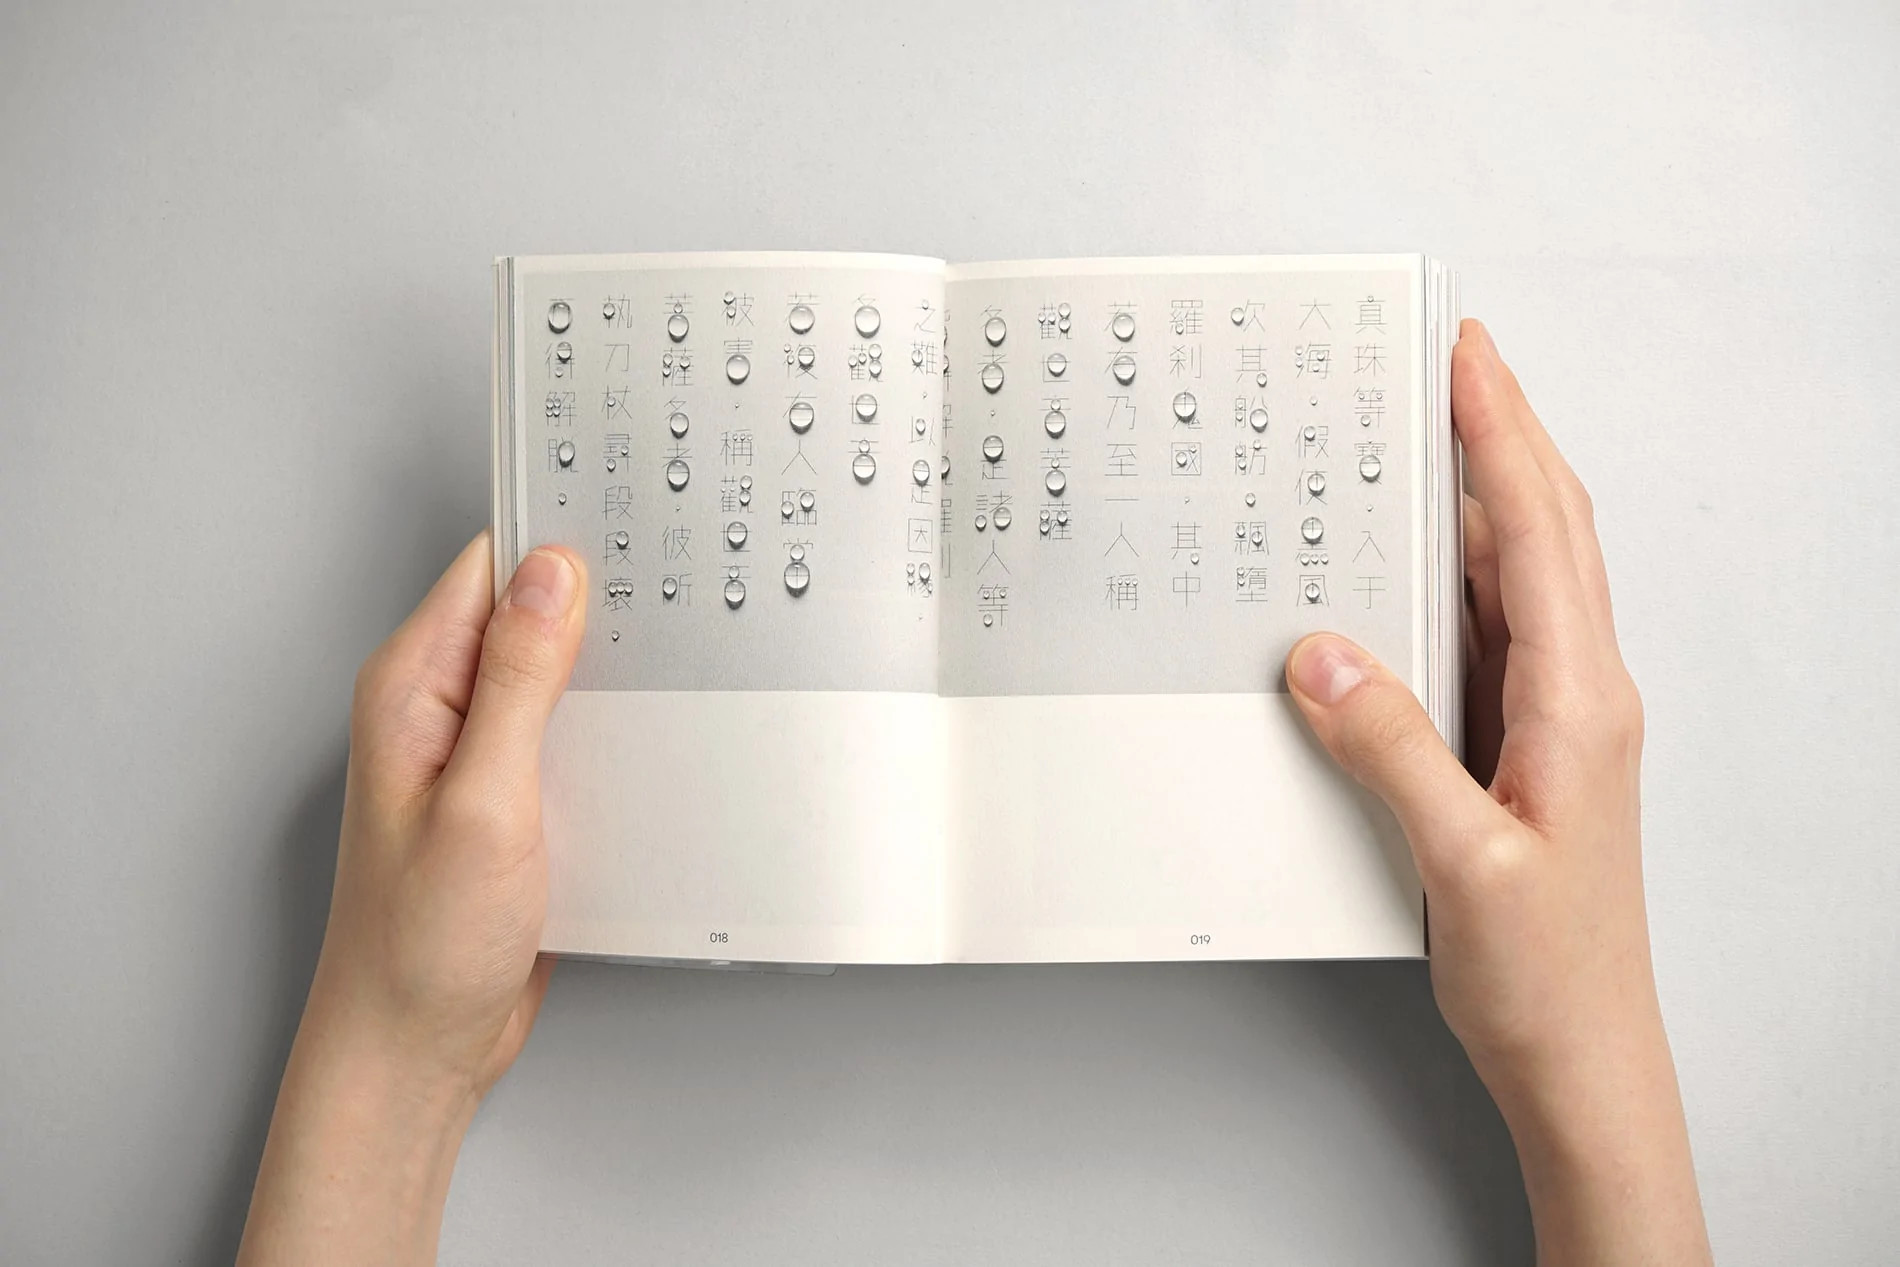 真珠等寶。入于
大海。假使黑風
吹其船舫。飄墮
羅剎鬼國。其中
若有乃至一人稱
觀世音菩薩
名者。是諸人等
解脫羅剎
之難。以是因緣。
名觀世音
若復有人臨當
被害。稱觀世音
菩薩名者。彼所
執刀杖尋段段壞。
而得解脫。
018
019